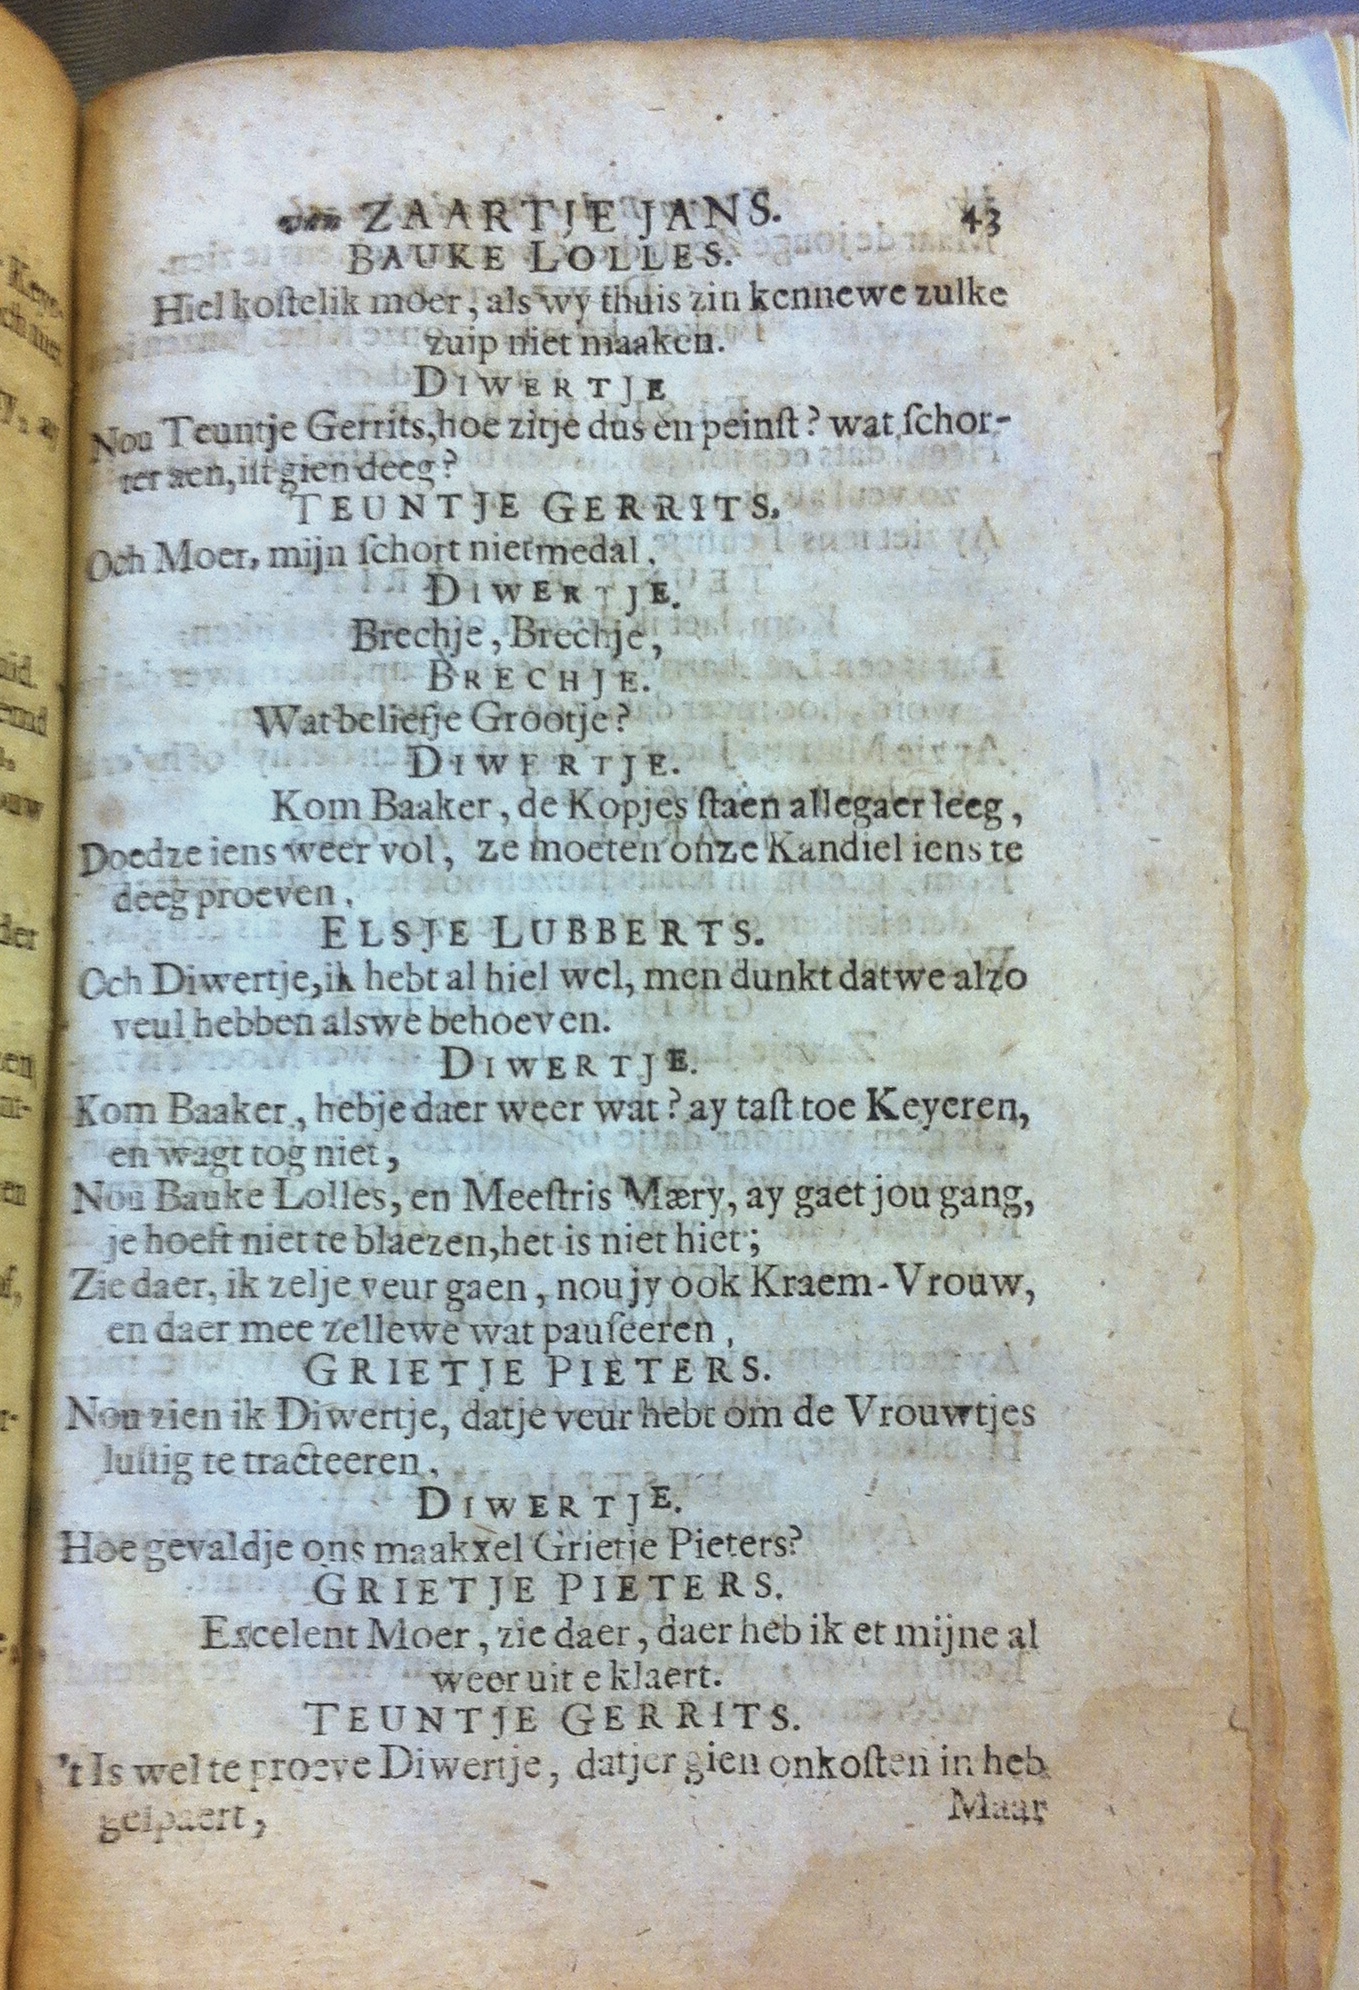 van ZAARTJE JANS. 43
BAUKE LOLLES.
Hiel koſtelik moer, als wy thuis zin kennewe zulke
zuip niet maaken.
DIWERTJE
Nou Teuntje Gerrits, hoe zitje dus en peinſt? wat ſchor-
ter aen, iſt gien deeg?
TEUNTJE GERRITS.
Och Moer, mijn ſchort niet medal.
DIWERTJE.
Brechje, Brechje,
BRECHJE.
Wat beliefje Grootje?
DIWERTJE.
Kom Baaker, de Kopjes ſtaen allegaer leeg,
Doedze iens weer vol, ze moeten onze Kandiel iens te
deeg proeven.
ELSJE LUBBERTS.
Och Diwertje, ik hebt al hiel wel, men dunkt datwe alzo
veul hebben alswe behoeven.
DIWERTJE.
Kom Baaker, hebje daer weer wat? ay taſt toe Keyeren,
en wagt tog niet,
Nou Bauke Lolles, en Meeſtris Mæry, ay gaet jou gang,
je hoeft niet te blaezen, het is niet hiet;
Zie daer, ik zelje veur gaen, nou jy ook Kraem-Vrouw,
en daer mee zellewe wat pauſeeren,
GRIETJE PIETERS.
Nou zien ik Diwertje, datje veur hebt om de Vrouwtjes
luſtig te tracteeren.
DIWERTJE.
Hoe gevaldje ons maakxel Grietje Pieters?
GRIETJE PIETERS.
Escelent Moer, zie daer, daer heb ik et mijne al
weer uit e klaert.
TEUNTJE GERRITS.
't Is wel te proeve Diwertje, datjer gien onkoſten in heb
geſpaert,
Maar